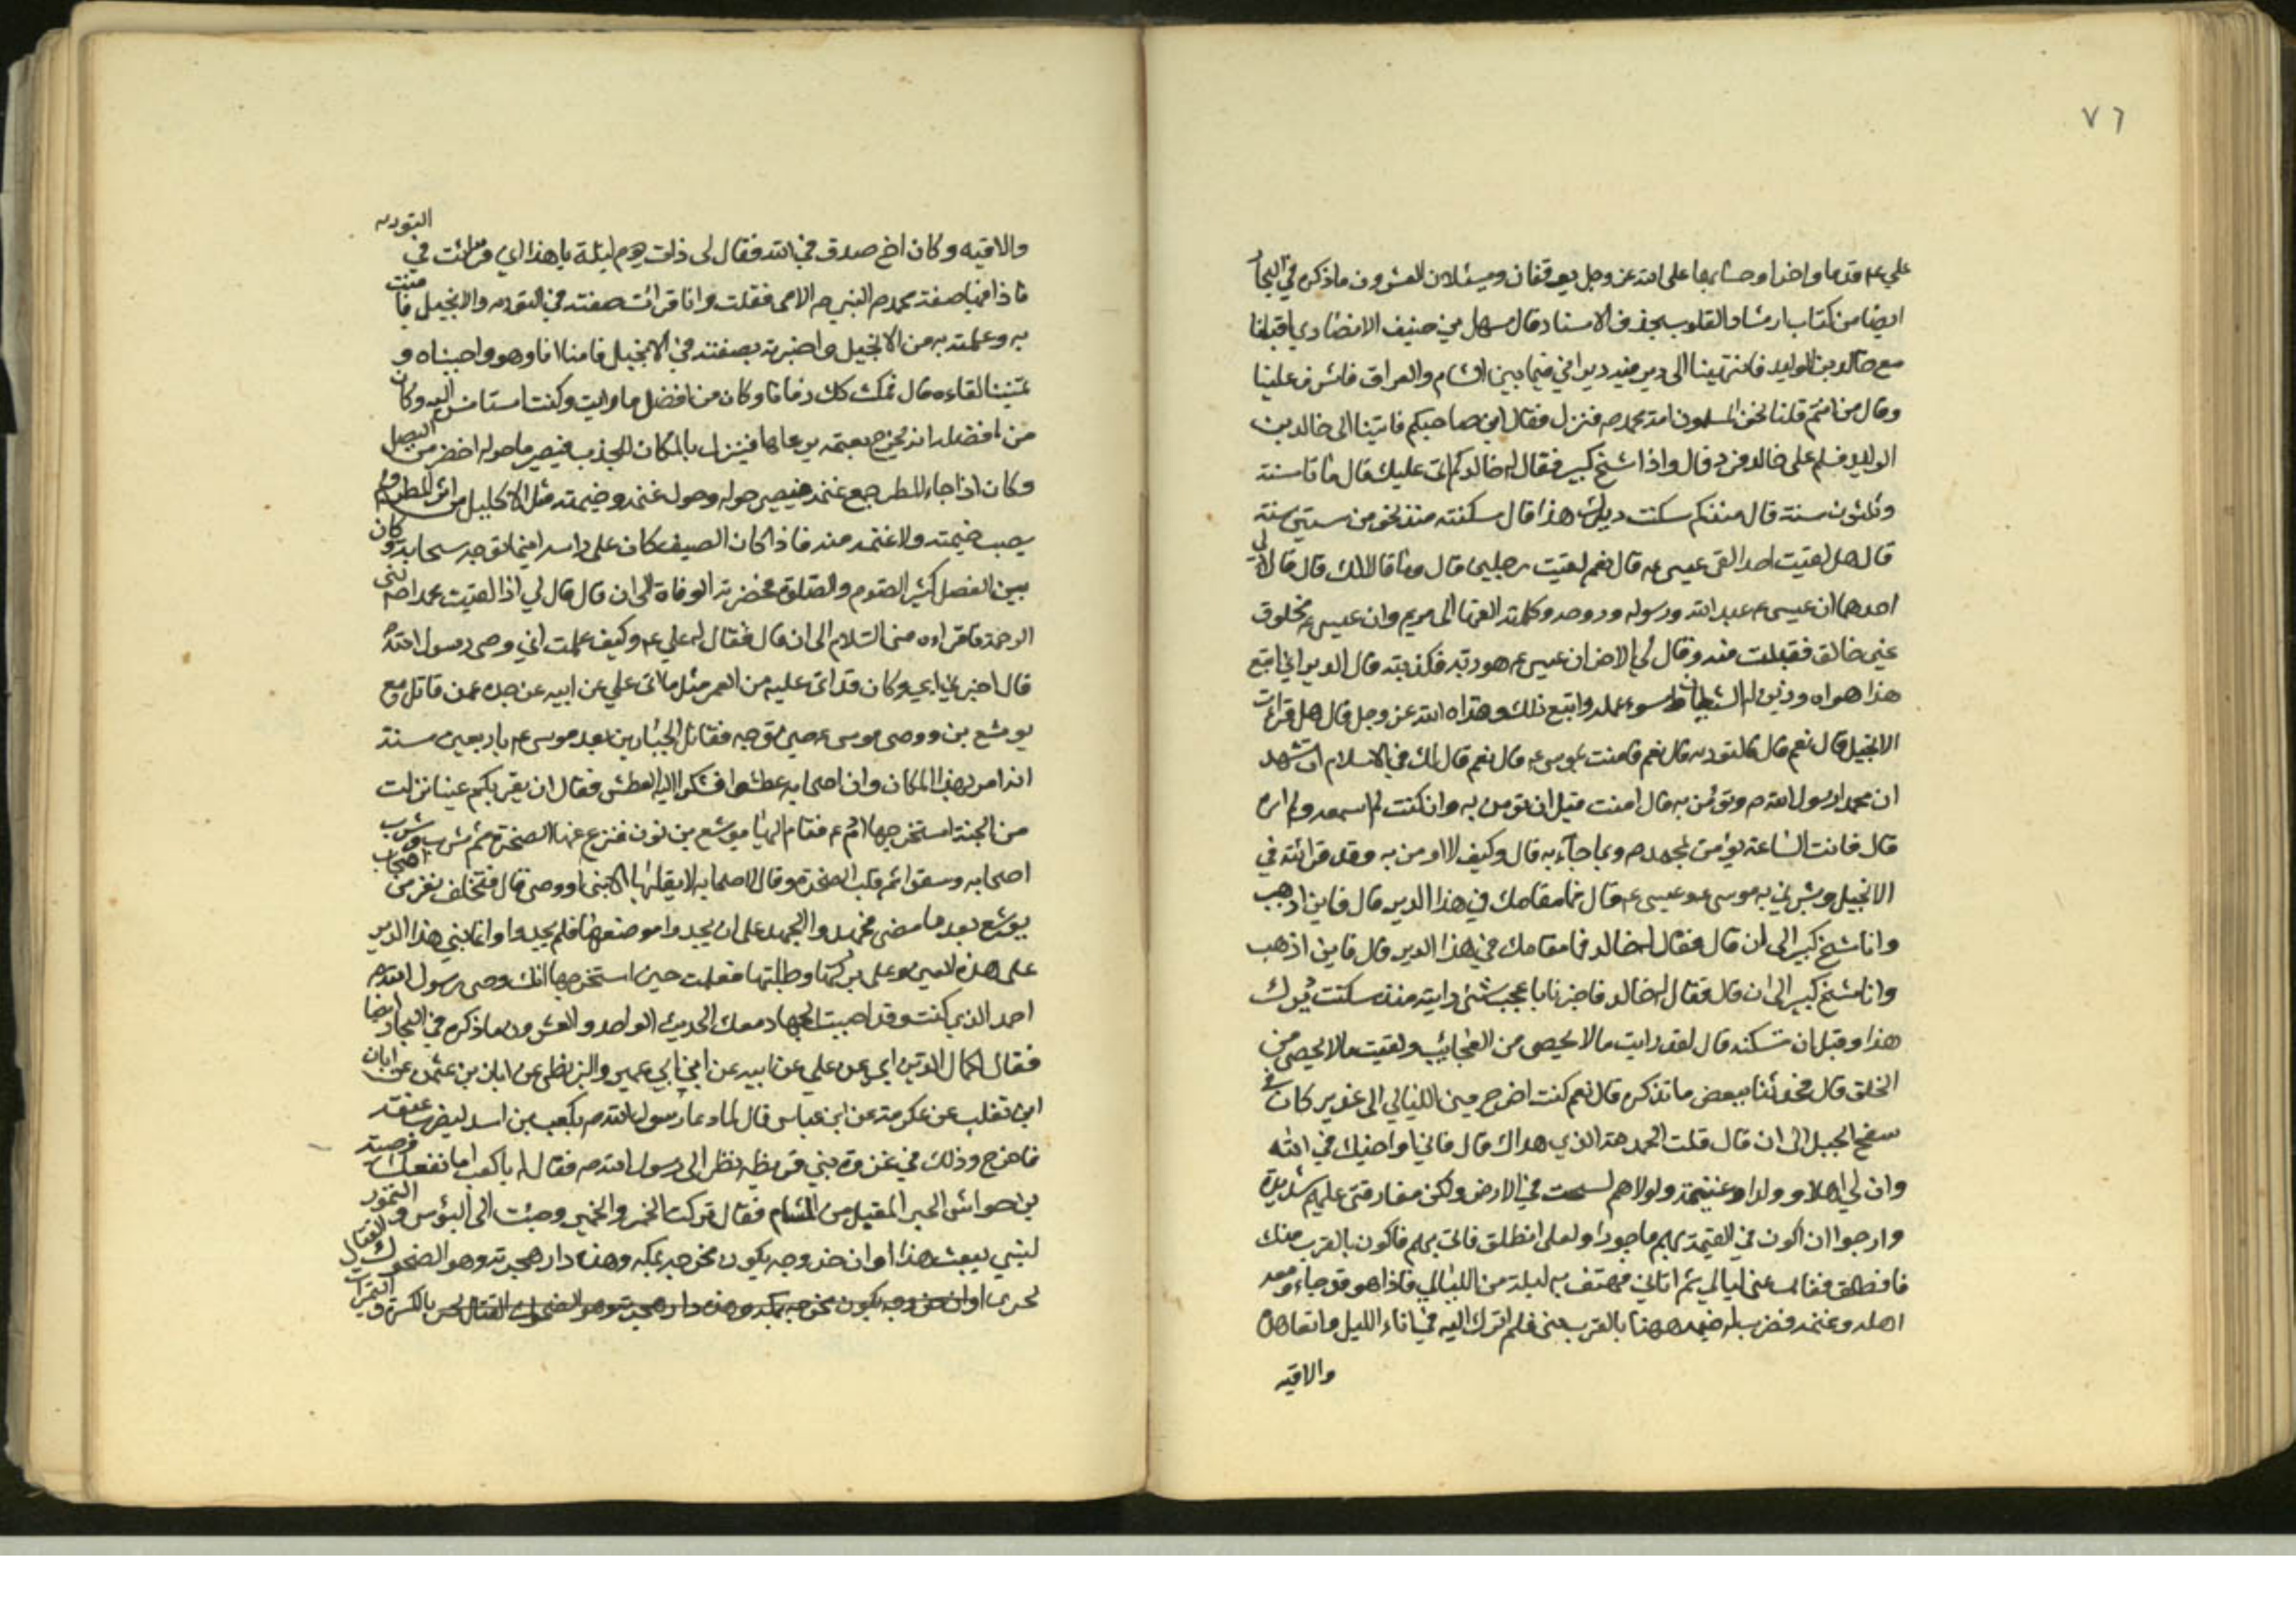 ٧٦
علي ع قدما واخدا وحسابهما على الله عز وجل يوقفان ويسئلان العشرون ما ذكره في البحار
ايضا من كتاب ارشاد القلوب بحذف الاسناد قال سهل بن حنيف الانصاري اقبلنا
مع خالد بن الوليد فانتهينا الى دير فيه ديراني فيما بين الشام والعراق فاشرف علينا
وقال من انتم قلنا نحن المسلمون امة محمد ص فنزل فقال اين صاحبكم فاتينا الى خالد بن
الوليد فسلم على خالد فرد قال واذا شيخ كبير فقال له خالد كم اتى عليك قال مائتا سنة
وثلثون سنة قال منذ كم سكنت ديرك هذا قال سكنته منذ نحو من ستين سنة
قال هل لقيت احدا لقى عيسى ع قال نعم لقيت رجلين قال وما قالا لك قال قال لي
احدهما ان عيسى ع عبد الله ورسوله وروحه وكلمته القها الى مريم وان عيسى ع مخلوق
غير خالق فقبلت منه وقال لي الاخر ان عيسى ع هو ربه فكذبته قال الديراني اتبع
هذا هواه وزين له الشيطان سوء عمله واتبع ذلك وهداه الله عز وجل قال هل قرات
الانجيل قال نعم قال فالتورية قال نعم فامنت بموسى ع قال نعم قال لك في الاسلام ان تشهد
ان محمدا رسول الله ص وتؤمن به قال امنت قبل ان تؤمن به وان كنت لم اسمعه ولم اره
قال فانت الساعة تؤمن بمحمد ص وبما جاء به قال وكيف لا اومن به وقد قرائته في
الانجيل وبشرني به موسى ع وعيسى ع قال فما مقامك في هذا الدير قال فاين اذهب
وانا شيخ كبير الى ان قال فقال خالد فما مقامك في هذا الدير قال فاين اذهب
وانا شيخ كبير الى ان قال فقال له خالد فاخبرنا باعجب شئ رايته منذ سكنت ديرك
هذا وقبل ان تسكنه قال لقد رايت ما لا يحصى من العجائب ولقيت ما لا يحصى من
الخلق قال فحدثنا ببعض ما تذكره قال نعم كنت اخرج بين الليالي الى غدير كان في
سفح الجبل الى ان قال قلت الحمد لله الذي هداك قال فاني اواخيك في الله
وان لي اهلا وولدا وغنيمة ولولاهم لسحت في الارض ولكن مفارقتي عليهم شديدة
وارجوا ان اكون في القيمة بهم ماجورا ولعلى انطلق فاتي بهم فاكون بالقرب منك
فانطلق فغاب عني ليالي ثم اتاني فهتف به ليلة من الليالي فاذا هو قد جاء ومعه
اهله وغنمه فضرب له خيمة ههنا بالقرب مني فلم اترك اليه في اناء الليل واتعاهده
والاقيه
والاقيه وكان اخ صدق في الله فقال لي ذات يوم ليلة يا هذا اني قرائت في التورية
فاذا فيها صفة محمد ص النبي ص الامي فقلت وانا قرائت صفته في التورية والانجيل فامنت
به وعلمته به من الانجيل واخبرته بصفته في الانجيل فامنا انا وهو واحببناه و
تمنينا لقاءه قال فمكث كذلك زمانا وكان من افضل ما رايت وكنت استانس اليه وكان
من افضله انه يخرج بغنمه يرعاها فينزل بالمكان المجدب فيصير ما حوله اخضر من البقل
وكان اذا جاء المطر جمع غنمه فيصير حوله وحول غنمه وخيمته مثل الاكليل من اثر المطر ولم
يصب خيمته ولا غنمه منه فاذا كان الصيف كان على راسه اينما توجه سحابة وكان
بين الفضل كثير الصوم والصلوة فحضرته الوفاة الى ان قال قال لي اذا لقيت محمدا ص نبي
الرحمة فاقراه مني السلام الى ان قال فقال له علي ع وكيف علمت اني وصي رسول الله ص
قال اخبرني ابي وكان قد اتى عليه من العمر مثل ما اتى علي عن ابيه عن جده عمن قاتل مع
يوشع بن ووصي موسى ع حين توجه فقاتل الجبارين بعد موسى ع باربعين سنة
انه امر بهذا المكان وان اصحابه عطشوا فشكوا اليه العطش فقال ان بقربكم عينا نزلت
من الجنة استخرجها ادم ع فقام اليها يوشع بن نون فنزع عنها الصخرة ثم شرب وشرب
اصحابه وسقوا ثم قلب الصخرة وقال لاصحابه لا يقلبها الا نبي او وصي قال فتخلف نفر من اصحاب
يوشع بعد ما مضى فجهدوا الجهد على ان يجدوا موضعها فلم يجدوا وانما بني هذا الدير
على هذه العين وعلى بركتها وطلبتها فعلمت حين استخرجها انك وصي رسول الله ص
احمد الذي كنت وقد احببت الجهاد معك الحديث الواحد والعشرون ما ذكره في البحار ايضا
فقال اكمال الدين ابي عن علي عن ابيه عن ابن ابي عمير والبزنطي عن ابان بن عثمن عن ابان
ابن تغلب عن عكرمة عن ابن عباس قال لما دعا رسول الله ص بكعب بن اسد ليضرب عنقه
فاخرج وذلك في غزوة بني قريظه نظر الى رسول الله ص فقال له يا كعب اما نفعك وصية
بن حواش الحبر المقبل من الشام فقال تركت الخمر والخمير وجئت الى البؤس والتمور
لنبي يبعث هذا اوان خروجه يكون مخرجه بمكه وهذه دار هجرته وهو الضحوك القتال